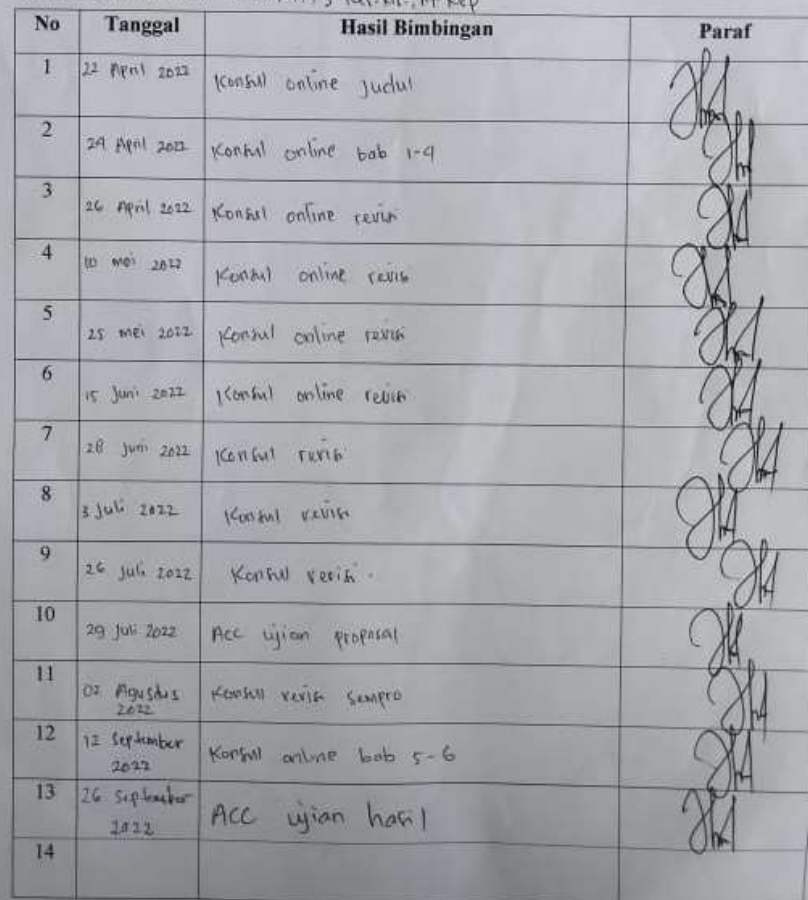 M.Kep
No Tanggal Hasil Bimbingan Paraf
1 22 April 2022 Konsul online judul
2 24 April 2022 Konsul online bab 1-4
3 26 April 2022 Konsul online revisi
4 10 mei 2022 Konsul online revisi
5 25 mei 2022 Konsul online revisi
6 15 Juni 2022 Konsul online revisi
7 28 Juni 2022 Konsul revisi
8 3 Juli 2022 Konsul revisi
9 26 Juli 2022 Konsul revisi.
10 29 Juli 2022 Acc ujian proposal
11 02 Agustus
2022 Konsul revisi sempro
12 12 September
2022 Konsul online bab 5-6
13 26 September
2022 ACC ujian hasil
14